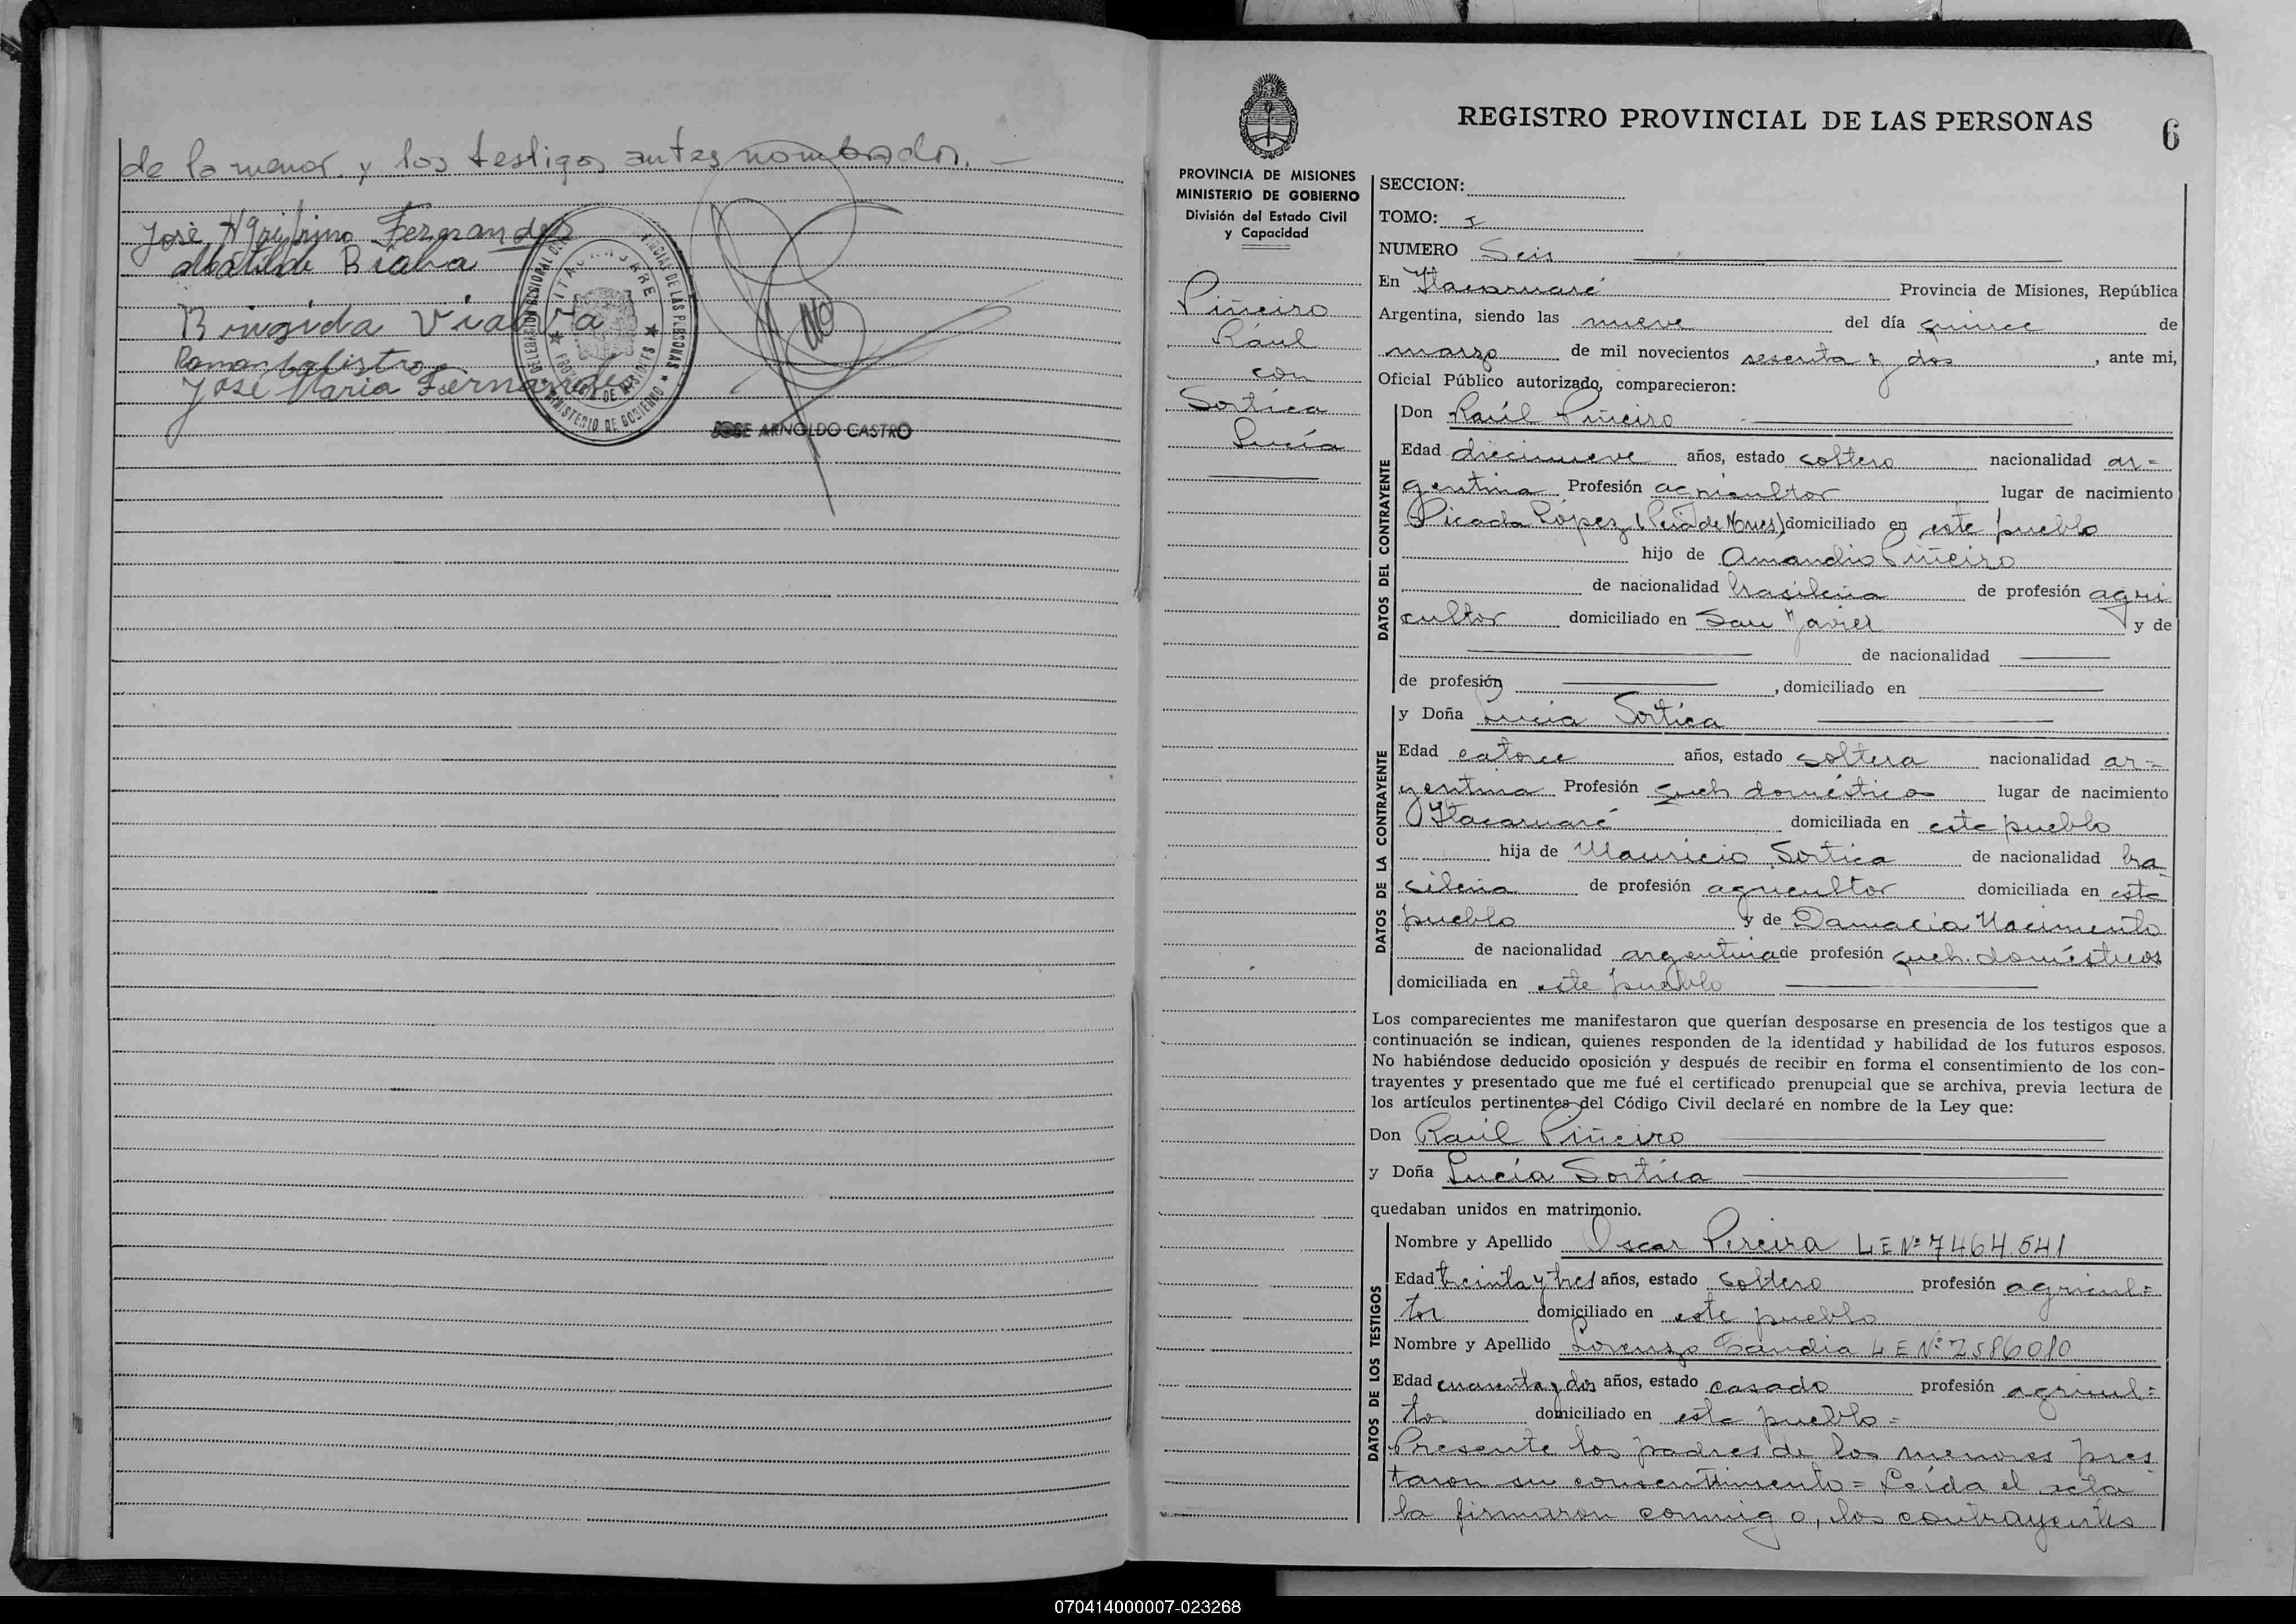 de la menor y los testigos antes nombrados.
José Agripino Fernandez
Matilde Viana
Brigida Viana
Ramon Balistro
José Maria Fernandez
JOSE ARNOLDO CASTRO
REGISTRO PROVINCIAL DE LAS PERSONAS
6
PROVINCIA DE MISIONES
MINISTERIO DE GOBIERNO
División del Estado Civil
y Capacidad
Piñeiro
Raúl
con
Sortica
Lucía
SECCION:
TOMO: I
NUMERO Seis
En Itacaruaré Provincia de Misiones, República
Argentina, siendo las nueve del día quince de
marzo de mil novecientos sesenta y dos, ante mi,
Oficial Público autorizado, comparecieron:
DATOS DEL CONTRAYENTE
Don Raúl Piñeiro
Edad diecinueve años, estado soltero nacionalidad ar=
gentina Profesión agricultor lugar de nacimiento
Picada López domiciliado en este pueblo
hijo de Amandio Piñeiro
de nacionalidad brasileña de profesión agri
cultor domiciliado en San Javier y de
de nacionalidad
de profesión , domiciliado en
DATOS DE LA CONTRAYENTE
y Doña Lucía Sortica
Edad catorce años, estado soltera nacionalidad ar=
gentina Profesión queh domésticos lugar de nacimiento
Itacaruaré domiciliada en este pueblo
hija de Mauricio Sortica de nacionalidad bra
sileña de profesión agricultor domiciliada en este
pueblo y de Damacia Nacimento
de nacionalidad argentina de profesión queh. domésticos
domiciliada en este pueblo
Los comparecientes me manifestaron que querían desposarse en presencia de los testigos que a
continuación se indican, quienes responden de la identidad y habilidad de los futuros esposos.
No habiéndose deducido oposición y después de recibir en forma el consentimiento de los con-
trayentes y presentado que me fué el certificado prenupcial que se archiva, previa lectura de
los artículos pertinentes del Código Civil declaré en nombre de la Ley que:
Don Raúl Piñeiro
y Doña Lucía Sortica
quedaban unidos en matrimonio.
DATOS DE LOS TESTIGOS
Nombre y Apellido Oscar Pereira L E Nº 7464.541
Edad treinta y tres años, estado soltero profesión agricul=
tor domiciliado en este pueblo
Nombre y Apellido Lorenzo Candia L E Nº 2586010
Edad cuarenta y dos años, estado casado profesión agricul=
tor domiciliado en este pueblo =
Presente los padres de los menores pres
taron su consentimiento = Leída el acta
la firmaron conmigo, los contrayentes
070414000007-023268